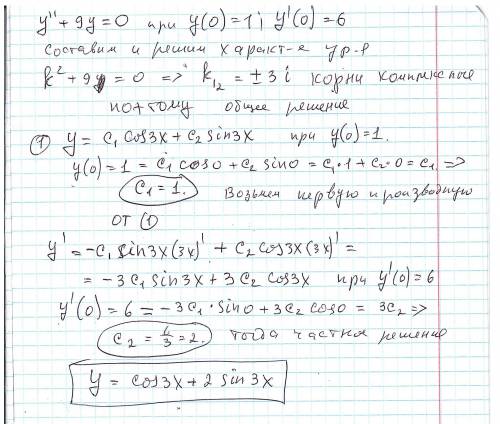 y'' + 9y = 0 при y(0) = 1; y'(0) = 6
составим и решим характ-е ур-е
k² + 9 = 0 => k₁₂ = ± 3i корни комплексные
поэтому общее решение
① y = c₁ cos3x + c₂ sin3x при y(0) = 1.
y(0) = 1 = c₁ cos0 + c₂ sin0 = c₁·1 + c₂·0 = c₁ =>
c₁ = 1. Возьмем первую производную
от ①
y' = -c₁ sin3x (3x)' + c₂ cos3x (3x)' =
= -3c₁ sin3x + 3c₂ cos3x при y'(0) = 6
y'(0) = 6 = -3c₁·sin0 + 3c₂ cos0 = 3c₂ =>
c₂ = 6/3 = 2. тогда частное решение
y = cos3x + 2 sin3x